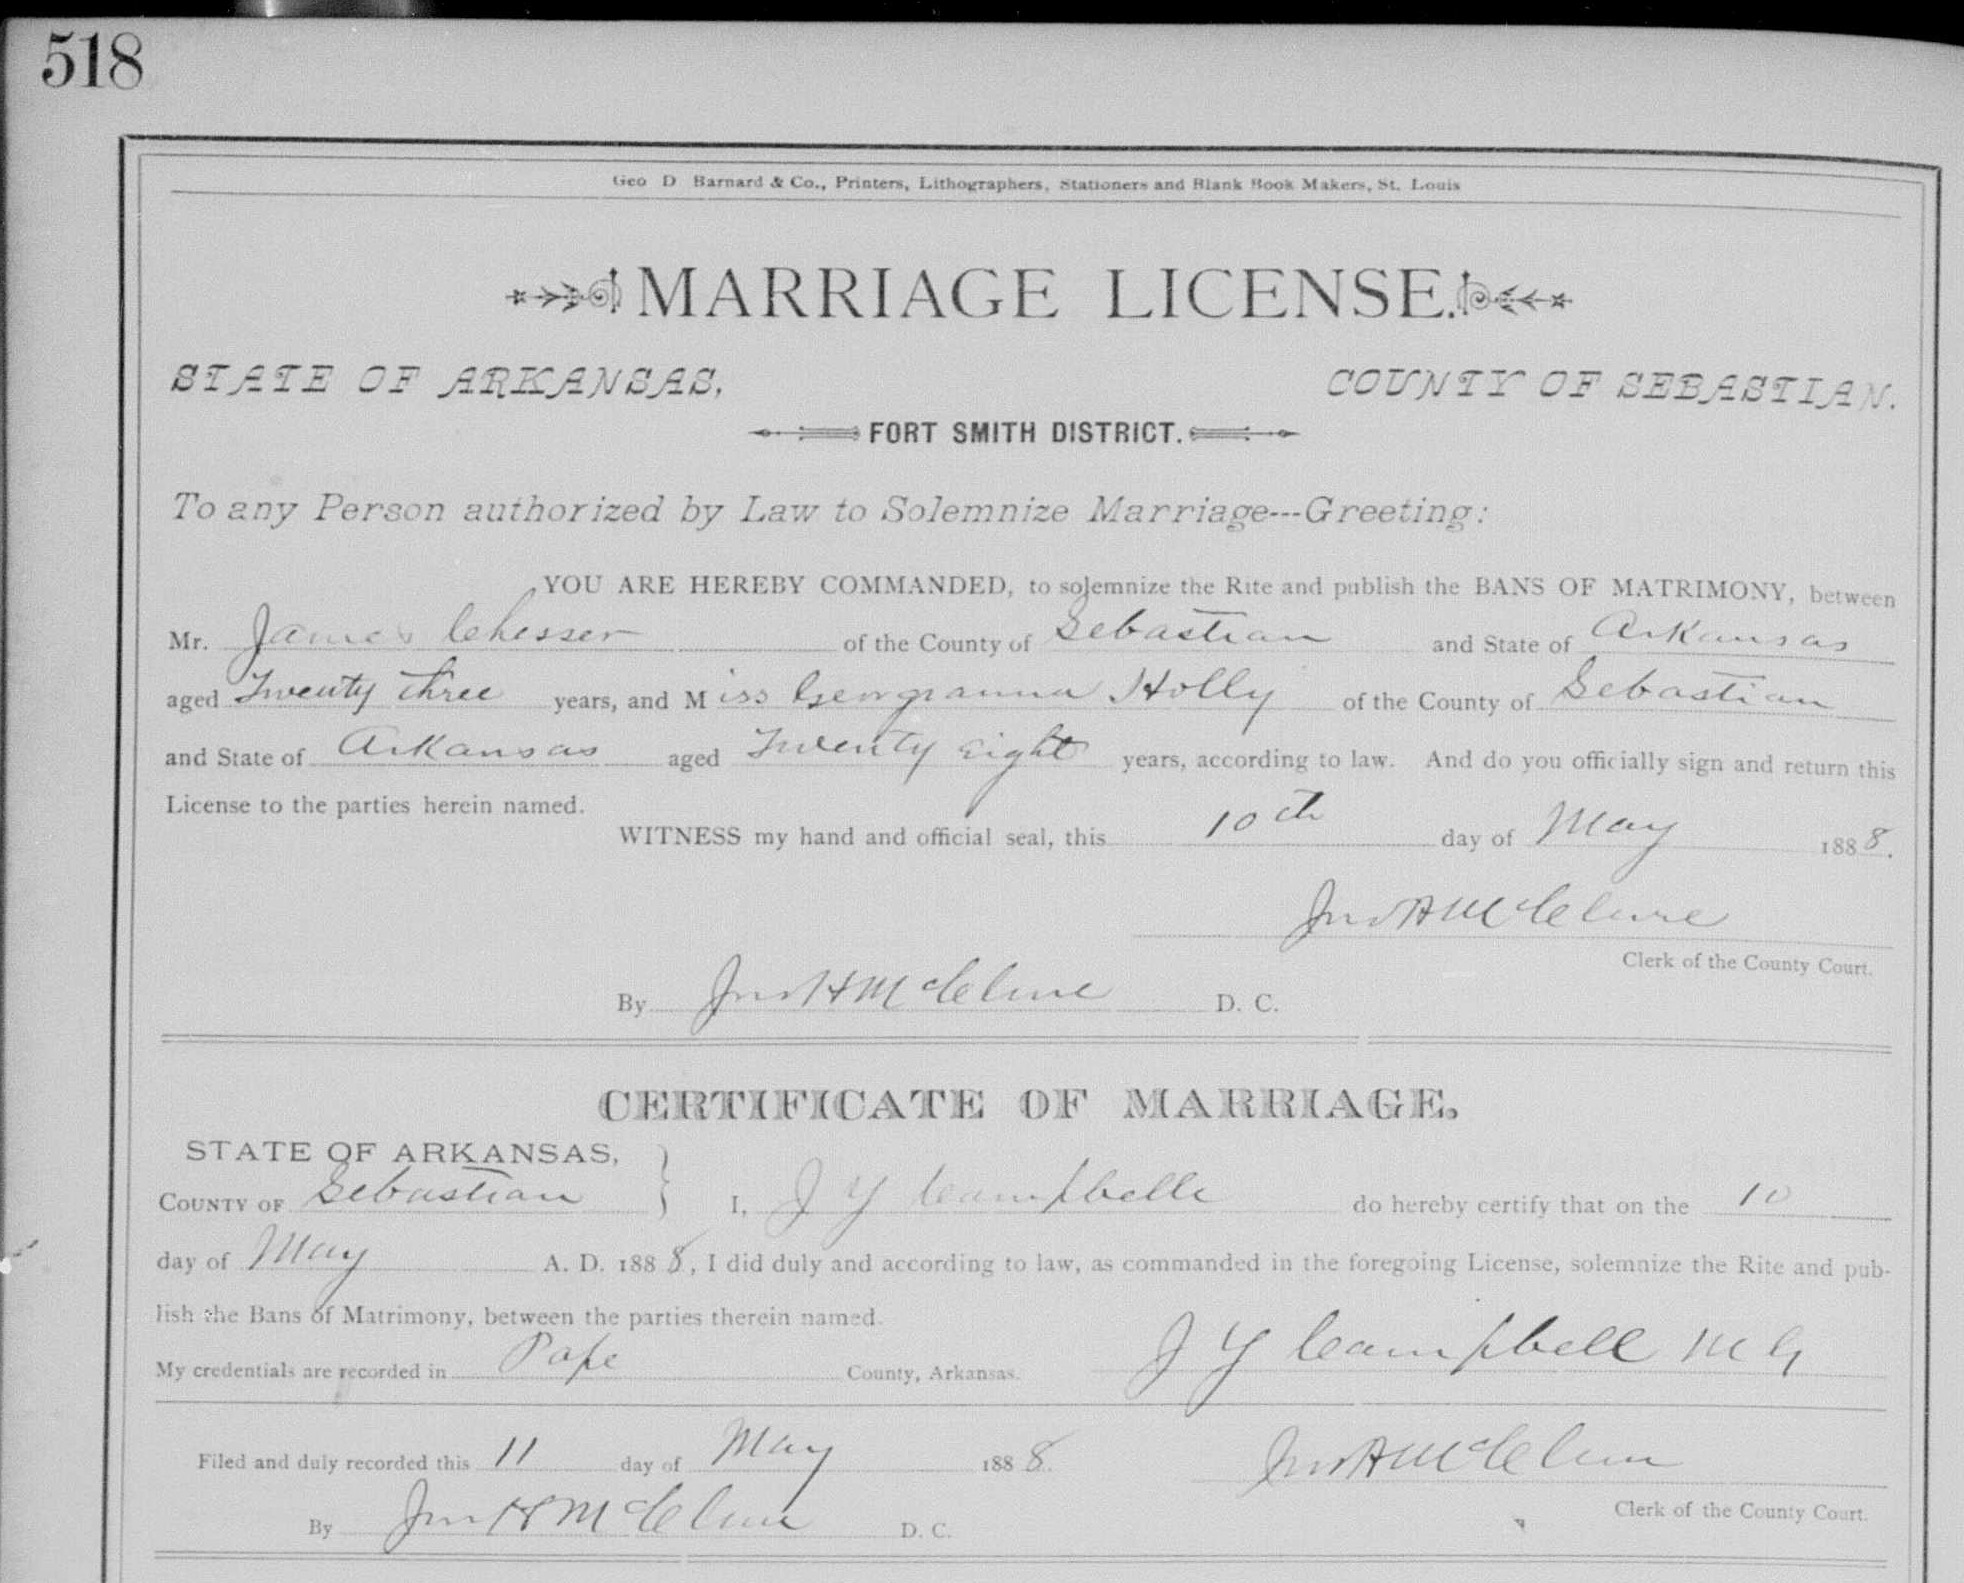 518
Geo D Barnard & Co., Printers, Lithographers, Stationers and Blank Book Makers, St. Louis
MARRIAGE LICENSE.
STATE OF ARKANSAS, COUNTY OF SEBASTIAN.
FORT SMITH DISTRICT.
To any Person authorized by Law to Solemnize Marriage---Greeting:
YOU ARE HEREBY COMMANDED, to solemnize the Rite and publish the BANS OF MATRIMONY, between
Mr. James Chesser of the County of Sebastian and State of Arkansas
aged Twenty three years, and Miss Georgianna Holly of the County of Sebastian
and State of Arkansas aged Twenty Eight years, according to law. And do you officially sign and return this
License to the parties herein named.
WITNESS my hand and official seal, this 10th day of May 1888.
Jno H McClure
Clerk of the County Court.
By Jno H McClure D. C.
CERTIFICATE OF MARRIAGE.
STATE OF ARKANSAS,
COUNTY OF Sebastian } I, J Y Campbelle do hereby certify that on the 10
day of May A. D. 1888, I did duly and according to law, as commanded in the foregoing License, solemnize the Rite and pub-
lish the Bans of Matrimony, between the parties therein named.
My credentials are recorded in Pope County, Arkansas. J Y Campbell M G
Filed and duly recorded this 11 day of May 1888. Jno H McClure
Clerk of the County Court.
By Jno H McClure D. C.